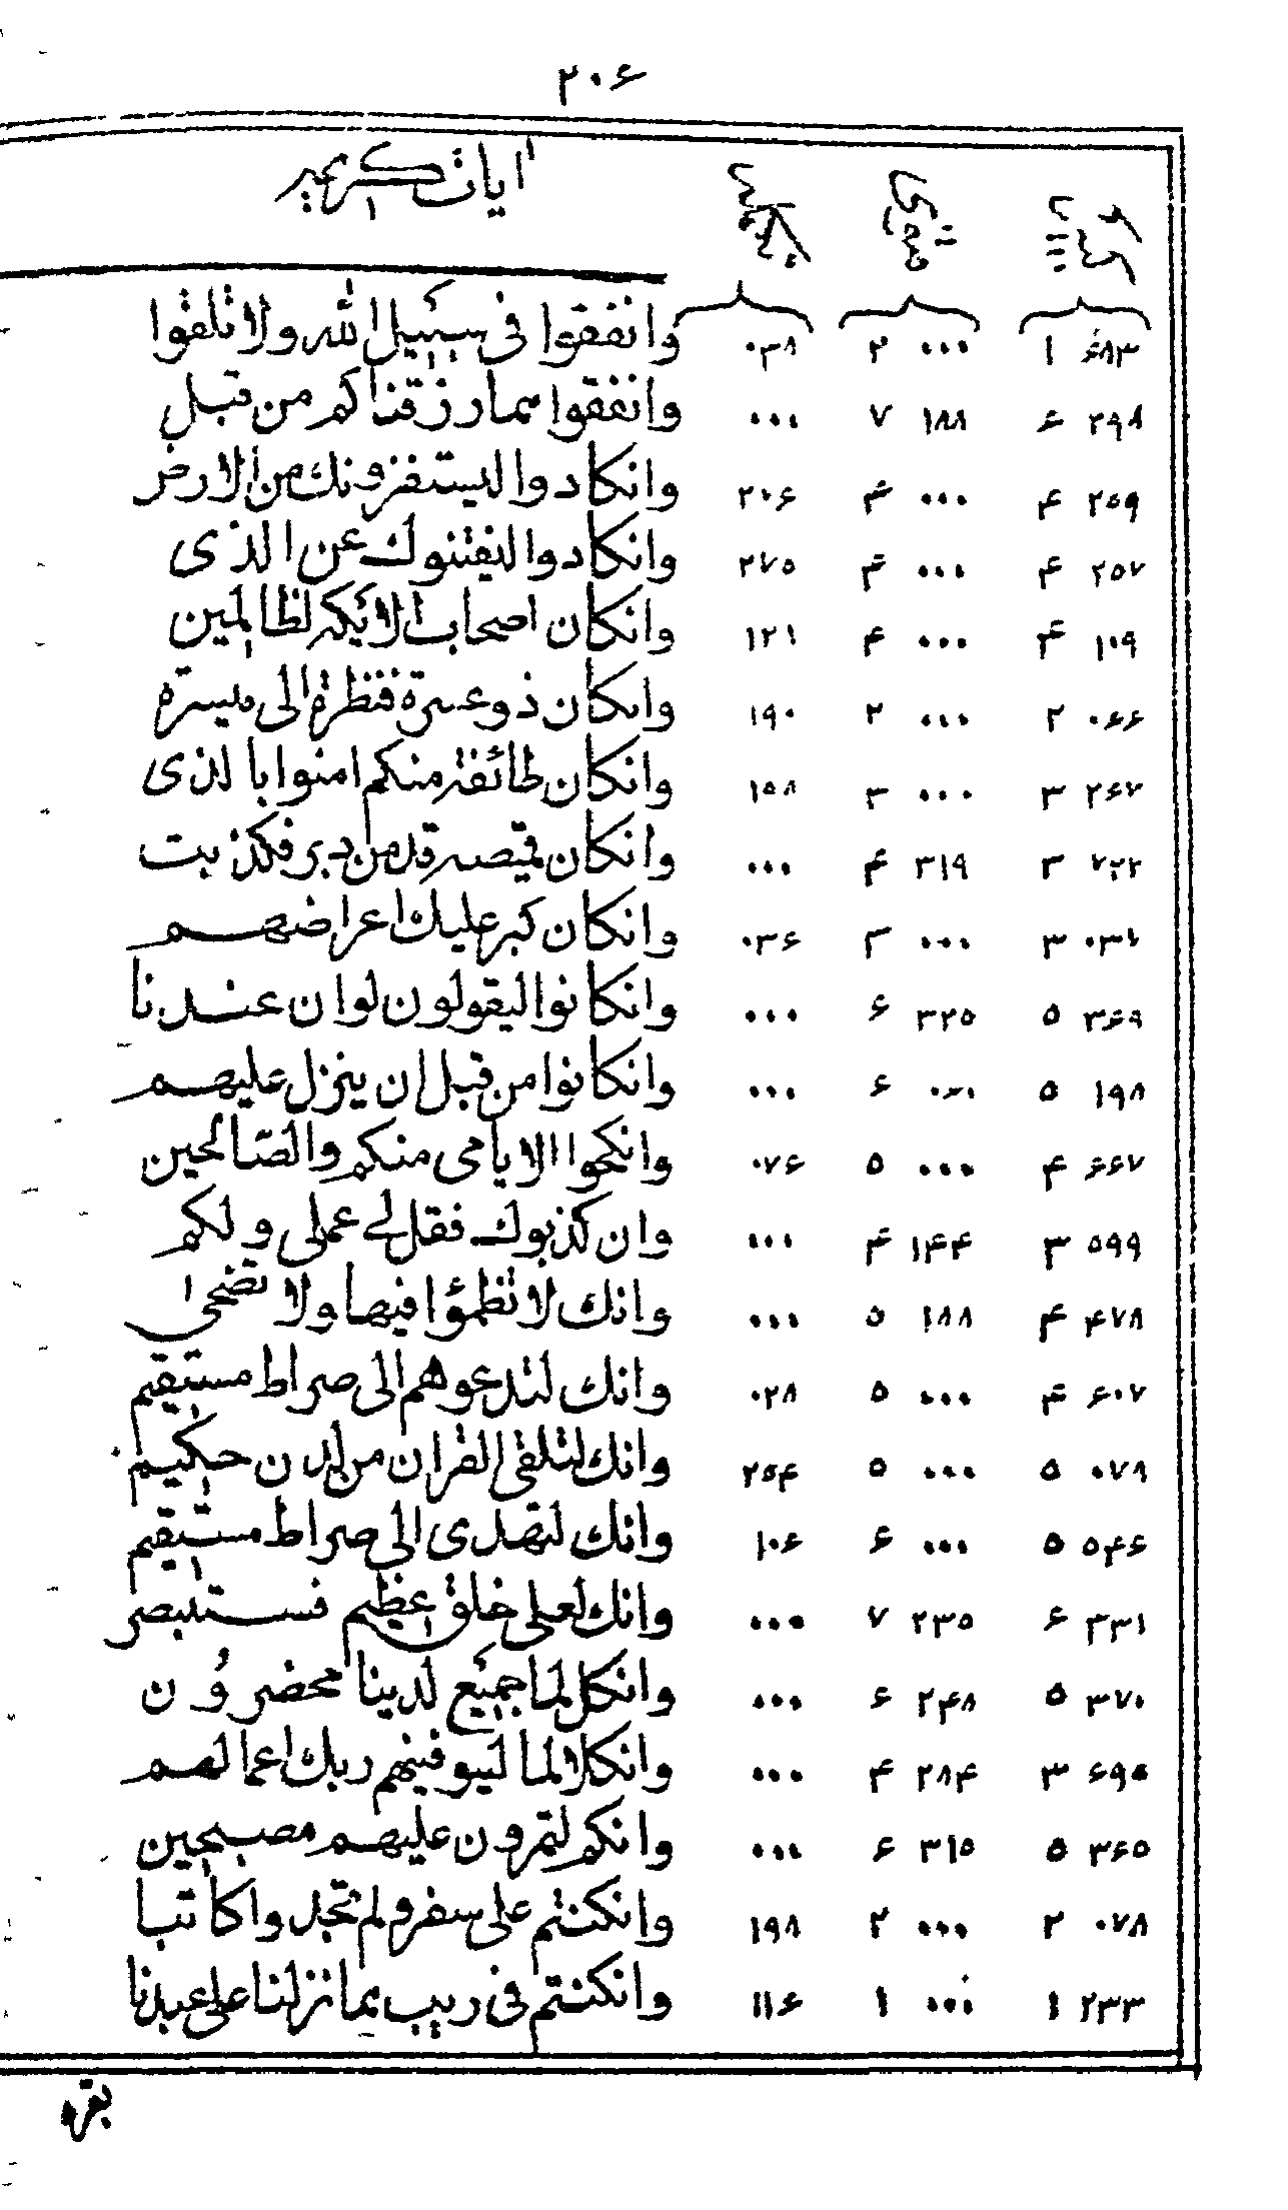 ۲۰۶
ایات کریمه
۶۸۳ ۱ ... ۲ ۰۳۸ وانفقوا فی سبیل الله ولا تلقوا
۲۹۸ ۶ ۱۸۸ ۷ ... وانفقوا مما رزقناکم من قبل
۲۵۹ ۴ ... ۴ ۲۰۶ وانکادوا لیستفزونک من الارض
۲۵۷ ۴ ... ۴ ۲۷۵ وانکادوا لیفتنونک عن الذی
۱۰۹ ۴ ... ۴ ۱۲۱ وانکان اصحاب الایکه لظالمین
۰۶۶ ۲ ... ۲ ۱۹۰ وانکان ذوعسرة فنظرة الی میسرة
۲۶۷ ۳ ... ۳ ۱۵۸ وانکان طائفة منکم امنوا بالذی
۷۲۲ ۳ ۳۱۹ ۴ ... وانکان قمیصه قد من دبر فکذبت
۳ ... ۰۳۶ وانکان کبر علیک اعراضهم
۳۶۹ ۵ ۳۲۵ ۶ ... وانکانوا لیقولون لو ان عندنا
۱۹۸ ۵ ۶ ... وانکانوا من قبل ان ینزل علیهم
۶۶۷ ۴ ... ۵ ۰۷۶ وانکحوا الایامی منکم والصالحین
۵۹۹ ۳ ۱۴۴ ۴ ... وان کذبوک فقل لی عملی ولکم
۴۷۸ ۴ ۱۸۸ ۵ ... وانک لا تظمؤا فیها ولا تضحی
۶۰۷ ۴ ... ۵ ۰۲۸ وانک لتدعوهم الی صراط مستقیم
۰۷۸ ۵ ... ۵ ۲۵۴ وانک لتلقی القران من لدن حکیم
۵۴۶ ۵ ... ۶ ۱۰۶ وانک لتهدی الی صراط مستقیم
۳۳۱ ۶ ۲۳۵ ۷ ... وانک لعلی خلق عظیم فستبصر
۳۷۰ ۵ ۲۴۸ ۶ ... وانکل لما جمیع لدینا محضرون
۶۹۵ ۳ ۲۸۴ ۴ ... وانکلا لما لیوفینهم ربک اعمالهم
۳۶۵ ۵ ۳۱۵ ۶ ... وانکم لتمرون علیهم مصبحین
۰۷۸ ۲ ... ۲ ۱۹۸ وانکنتم علی سفر ولم تجدوا کاتبا
۲۳۳ ۱ ... ۱ ۱۱۶ وانکنتم فی ریب مما نزلنا علی عبدنا
بقره